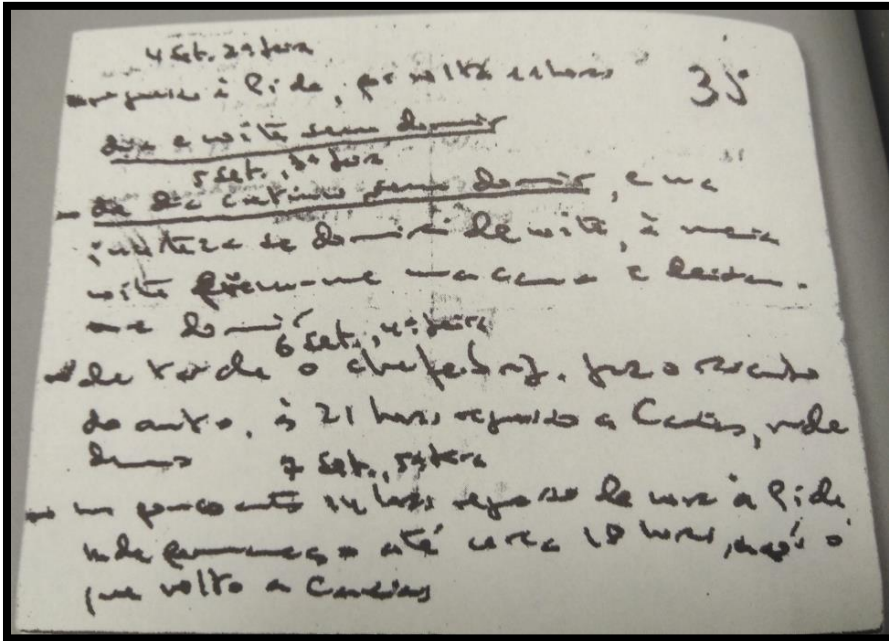 4 set. 2ª feira
regresso à Pide, por volta 11 horas
35
dia e noite sem dormir
5 set., 3ª feira
- dia contínuo sem dormir, e na
se dormi de noite, à meia
noite põem-me na cama e deixam-
me dormir
6 set., 4ª feira
- de tarde o chefe de brig. faz o
do auto, às 21 horas regresso a Caxias, onde
durmo
7 set., 5ª feira
- um pouco antes 14 horas regresso de novo à Pide
onde permaneço até cerca 18 horas, após o
que volto a Caxias